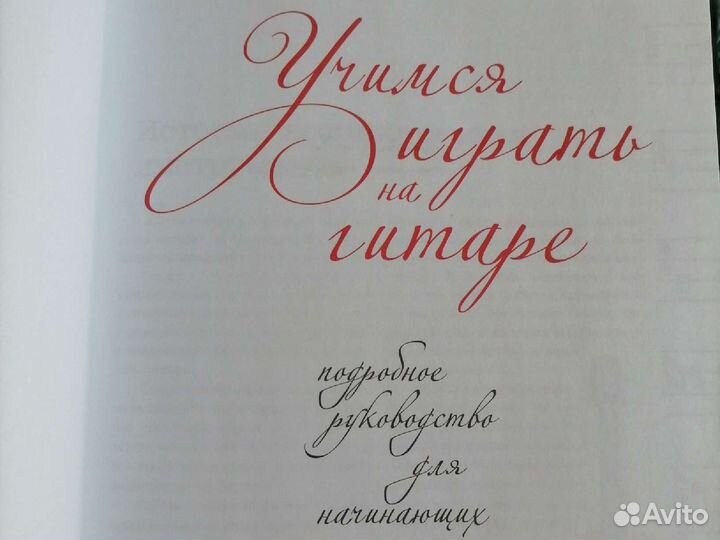 Учимся
играть
на
гитаре
подробное
руководство
для
начинающих
Avito